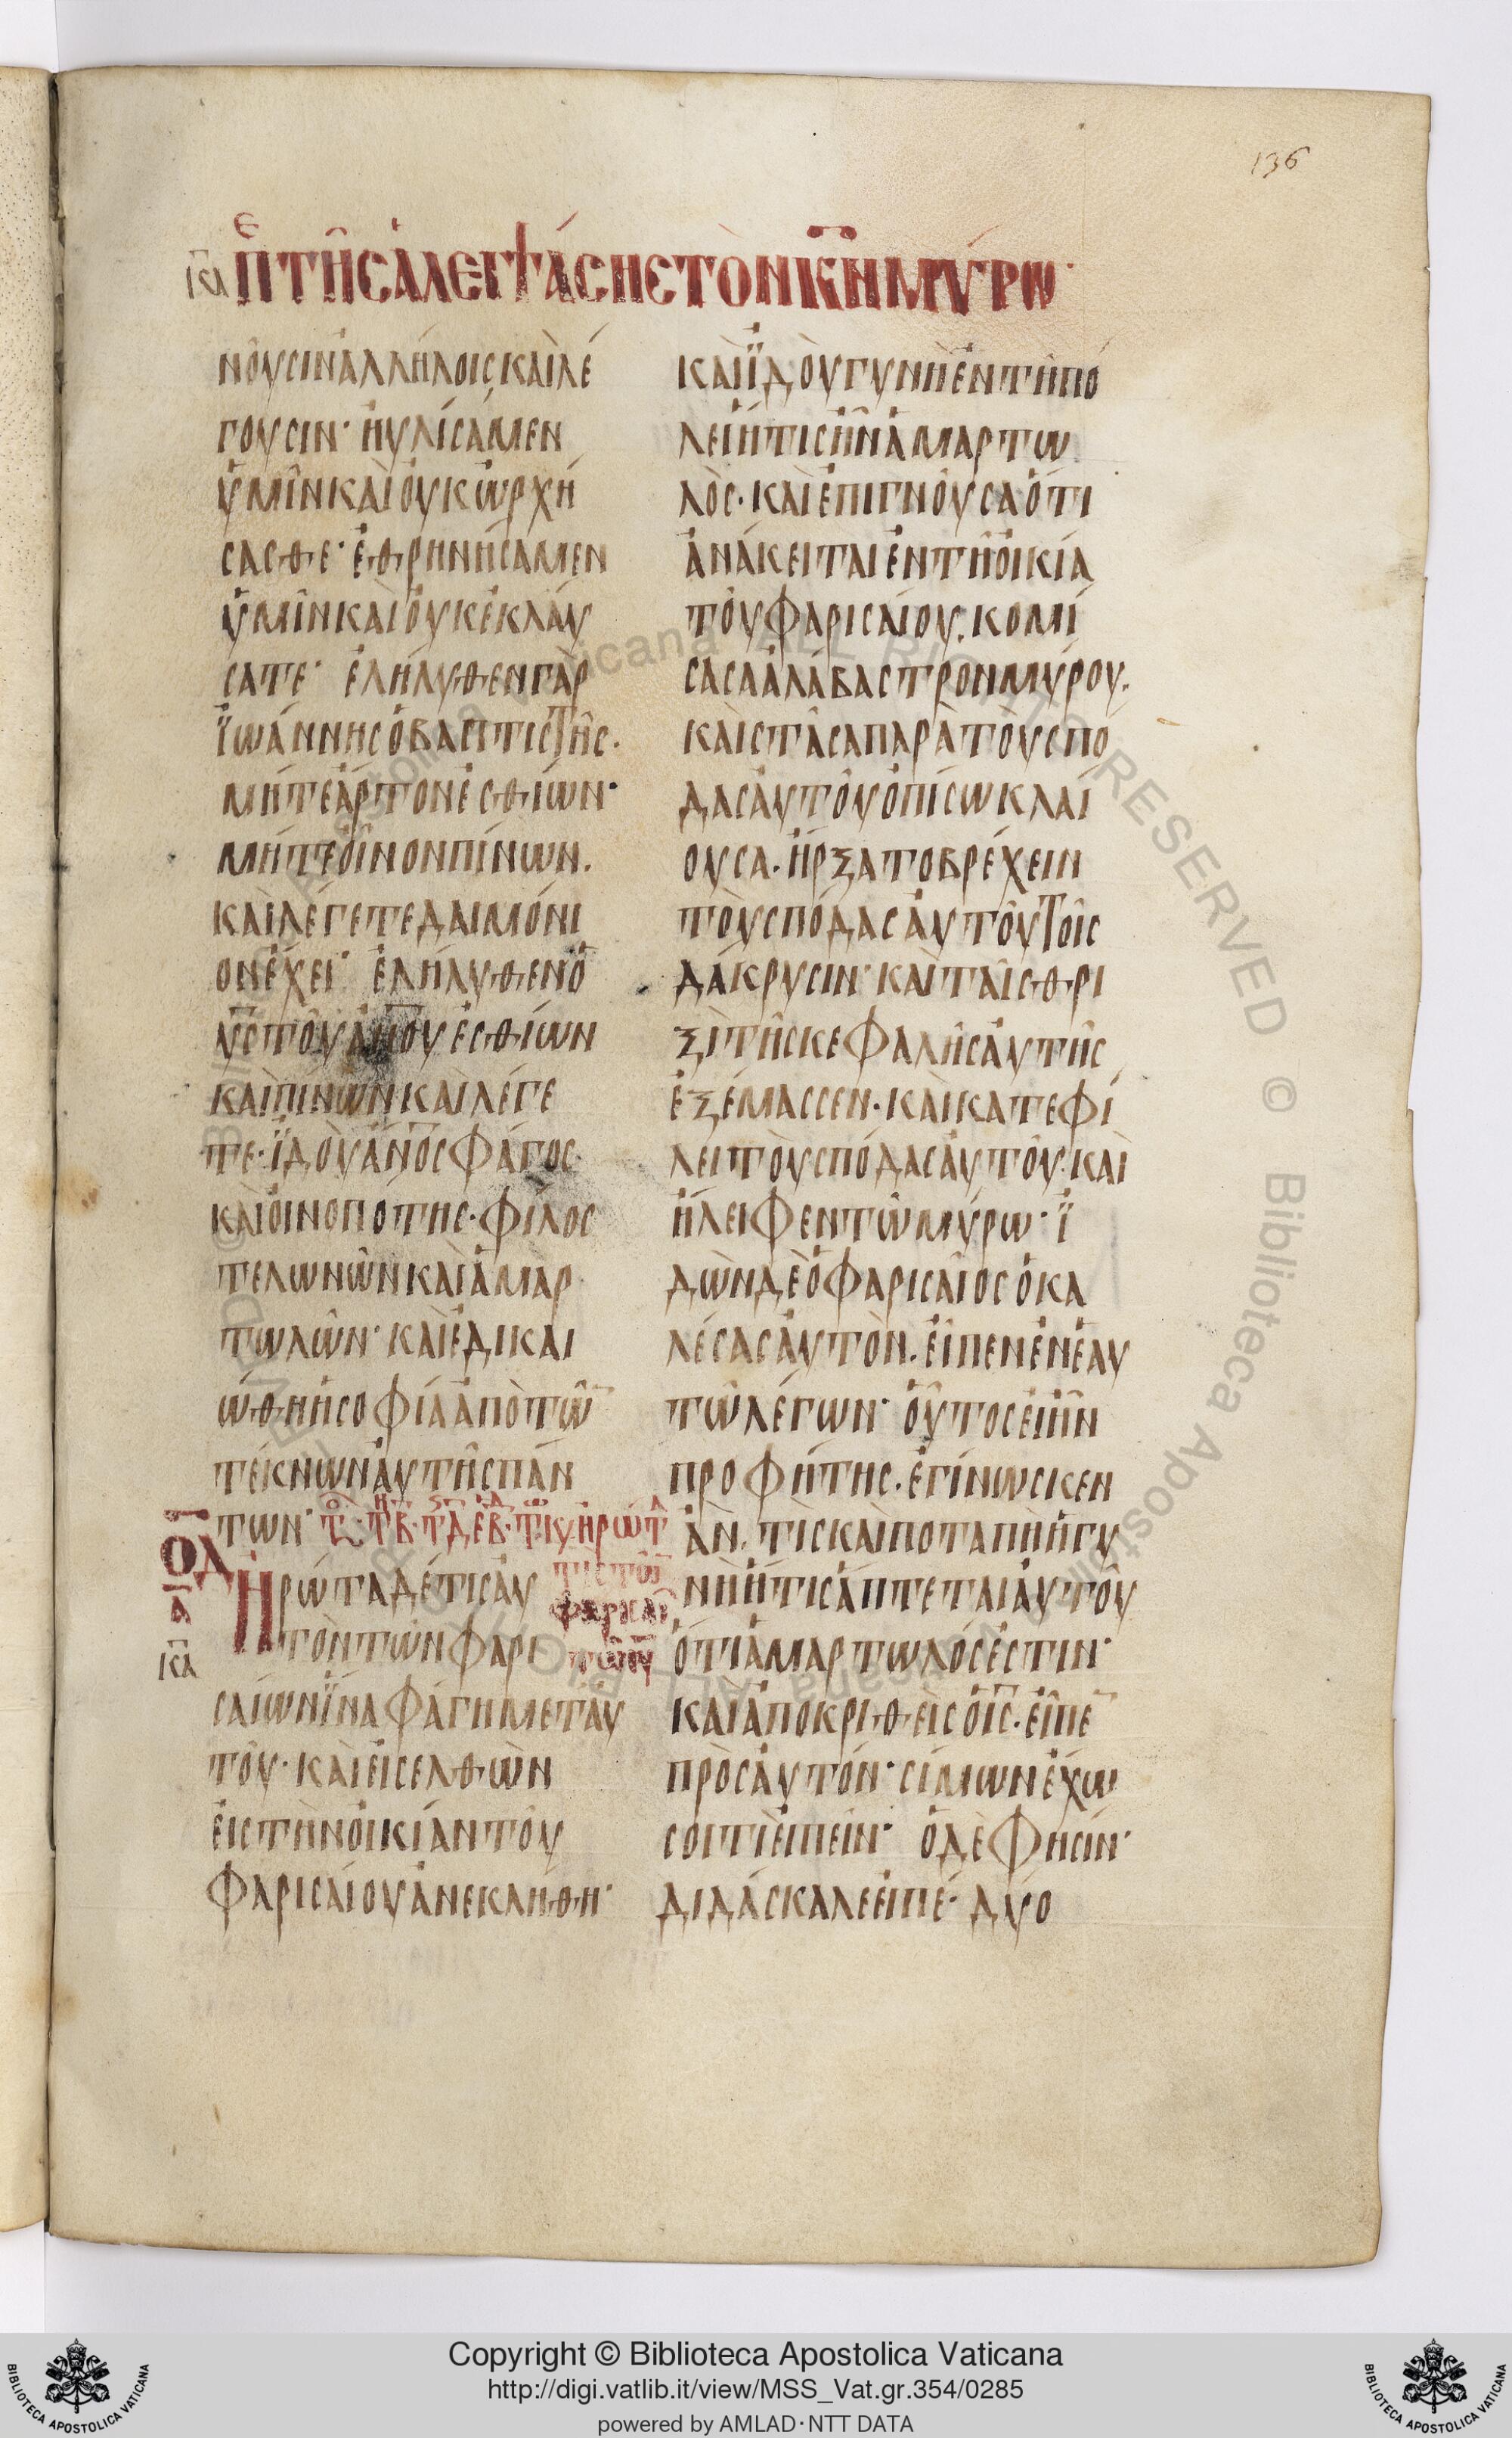 136
ΚΑ ΠΕ ΤΗΣ ἈΛΕΙΨΆΣΗΣ ΤῸΝ ΚΝ̄ ΜΎΡΩ·
ΝΟΥ͂ΣΙΝ ἈΛΛΉΛΟΙΣ ΚΑῚ ΛΈ
ΓΟΥΣΙΝ· ΗΥΛΊΣΑΜΕΝ
ὙΜΙ͂Ν ΚΑῚ ΟΥ̓Κ ὨΡΧΉ
ΣΑΣΘΕ· ἘΘΡΗΝΉΣΑΜΕΝ
ὙΜΙ͂Ν ΚΑῚ ΟΥ̓Κ ἘΚΛΆΥ
ΣΑΤΕ· ἘΛΉΛΥΘΕΝ ΓᾺΡ
ΪΩΆΝΝΗΣ Ὁ ΒΑΠΤΙΣΤΗ͂Σ·
ΜΉΤΕ ἌΡΤΟΝ ἘΣΘΊΩΝ·
ΜΉΤΕ ΟἾΝΟΝ ΠΊΝΩΝ.
ΚΑῚ ΛΈΓΕΤΕ ΔΑΙΜΌΝΙ
ΟΝ ἜΧΕΙ· ἘΛΉΛΥΘΕΝ Ὁ
ΥΣ̄ ΤΟΥ͂ ἈΝ̄ΟΥ ἘΣΘΊΩΝ
ΚΑῚ ΠΊΝΩΝ· ΚΑῚ ΛΈΓΕ
ΤΕ· ΪΔΟῪ ἌΝ̄ΟΣ ΦΆΓΟΣ·
ΚΑῚ ΟἸΝΟΠΌΤΗΣ· ΦΊΛΟΣ
ΤΕΛΩΝΩ͂Ν ΚΑῚ ἉΜΑΡ
ΤΩΛΩ͂Ν· ΚΑῚ ἘΔΙΚΑΙ
ΏΘΗ Ἡ ΣΟΦΊΑ ἈΠῸ ΤΩ͂Ν̄
ΤΈΚΝΩΝ ΑΥ̓ΤΗ͂Σ ΠΆΝ
ΤΩΝ·
ΟΔ
Α
ΚΑ
ἨΡΏΤΑ ΔΈ ΤΙΣ ΑΥ̓
ΤῸΝ ΤΩ͂Ν ΦΑΡΙ
ΣΑΊΩΝ ΪΝΑ ΦΆΓΗ ΜΕΤ' ΑΥ̓
ΤΟΥ͂· ΚΑῚ ΕἸΣΕΛΘῺΝ
ΕἸΣ ΤῊΝ ΟἸΚΊΑΝ ΤΟΥ͂
ΦΑΡΙΣΑΊΟΥ ἈΝΕΚΛΉΘΗ·
ΚΑῚ ΪΔΟῪ ΓΥΝῊ ἘΝ ΤΗ͂ ΠΌ
ΛΕΙ ἭΤΙΣ ἮΝ ἉΜΑΡΤΩ
ΛῸΣ· ΚΑῚ ἘΠΙΓΝΟΥ͂ΣΑ ὍΤΙ
ἈΝΆΚΕΙΤΑΙ ἘΝ ΤΗ͂ ΟἸΚΊΑ
ΤΟΥ͂ ΦΑΡΙΣΑΊΟΥ. ΚΟΜΊ
ΣΑΣΑ ἈΛΆΒΑΣΤΡΟΝ ΜΎΡΟΥ.
ΚΑῚ ΣΤΑ͂ΣΑ ΠΑΡᾺ ΤΟῪΣ ΠΌ
ΔΑΣ ΑΥ̓ΤΟΥ͂ ὈΠΊΣΩ ΚΛΑΊ
ΟΥΣΑ· ἬΡΞΑΤΟ ΒΡΈΧΕΙΝ
ΤΟῪΣ ΠΌΔΑΣ ΑΥ̓ΤΟΥ͂ ΤΟΙ͂Σ
ΔΆΚΡΥΣΙΝ· ΚΑῚ ΤΑΙ͂Σ ΘΡΙ
ΞῚ ΤΗ͂Σ ΚΕΦΑΛΗ͂Σ ΑΥ̓ΤΗ͂Σ
ἘΞΈΜΑΣΣΕΝ· ΚΑῚ ΚΑΤΕΦΊ
ΛΕΙ ΤΟῪΣ ΠΌΔΑΣ ΑΥ̓ΤΟΥ͂· ΚΑῚ
ἬΛΕΙΦΕΝ ΤΩ͂ ΜΎΡΩ· Ϊ
ΔῺΝ ΔῈ Ὁ ΦΑΡΙΣΑΙ͂ΟΣ Ὁ ΚΑ
ΛΈΣΑΣ ΑΥ̓ΤῸΝ. ΕἾΠΕΝ ἘΝ ἙΑΥ
ΤΩ͂ ΛΈΓΩΝ· ΟὟΤΟΣ ΕἸ ἮΝ
ΠΡΟΦΉΤΗΣ. ἘΓΊΝΩΣΚΕΝ
ἊΝ. ΤΊΣ ΚΑῚ ΠΟΤΑΠῊ Ἡ ΓΥ
ΝῊ ἭΤΙΣ ἍΠΤΕΤΑΙ ΑΥ̓ΤΟΥ͂
ὍΤΙ ἉΜΑΡΤΩΛΌΣ ἘΣΤΙΝ·
ΚΑῚ ἈΠΟΚΡΙΘΕῚΣ Ὁ ΙΣ̄· ΕἾΠΕ̄
ΠΡῸΣ ΑΥ̓ΤΌΝ· ΣΊΜΩΝ ἜΧΩ
ΣΟΙ ΤΙ ΕἸΠΕΙ͂Ν· Ὁ ΔΈ ΦΗΣΙΝ·
ΔΙΔΆΣΚΑΛΕ ΕἸΠΈ· ΔΎΟ
Copyright © Biblioteca Apostolica Vaticana
http://digi.vatlib.it/view/MSS_Vat.gr.354/0285
powered by AMLAD·NTT DATA
BIBLIOTECA APOSTOLICA VATICANA
BIBLIOTECA APOSTOLICA VATICANA